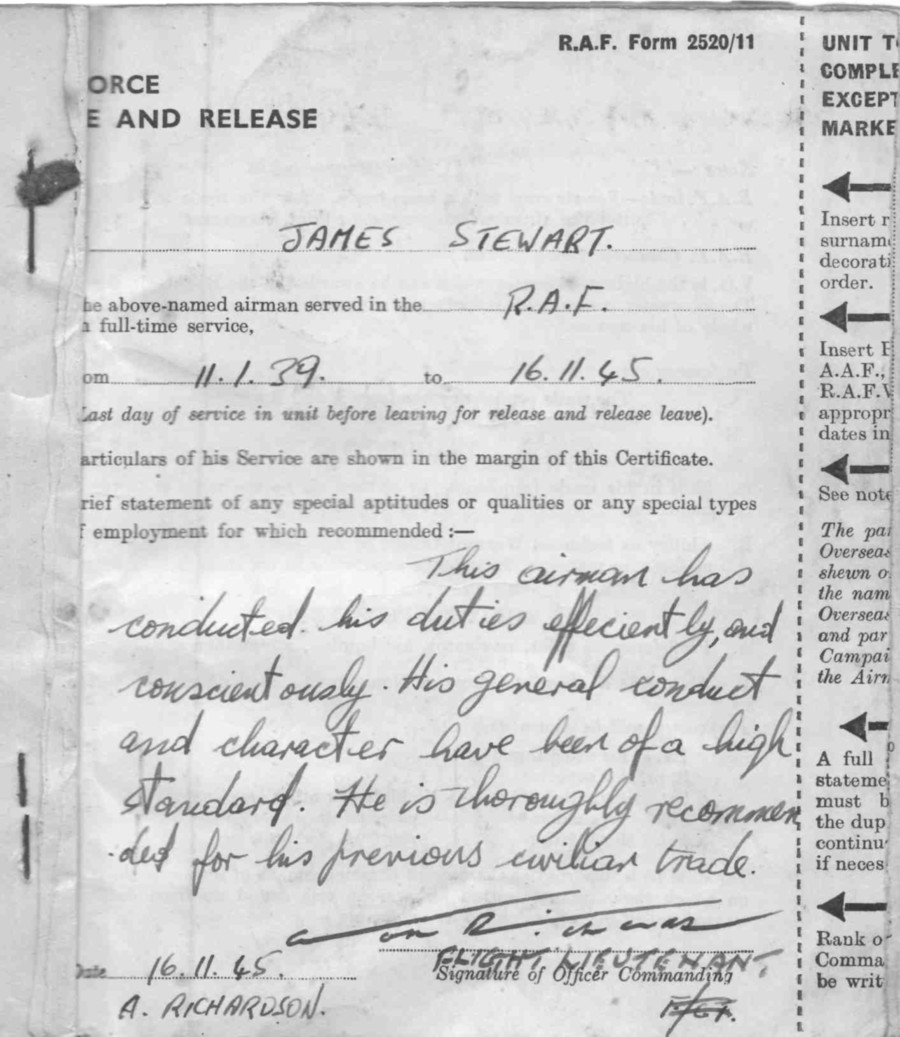 R.A.F. Form 2520/11
ORCE
E AND RELEASE
JAMES STEWART.
he above-named airman served in the R.A.F.
full-time service,
om 11.1.39. to 16.11.45.
Last day of service in unit before leaving for release and release leave).
articulars of his Service are shown in the margin of this Certificate.
rief statement of any special aptitudes or qualities or any special types
f employment for which recommended :—
This airman has
conducted his duties effeciently, and
conscientously. His general conduct
and character have been of a high
standard. He is thoroughly recommen
ded for his previous civilian trade.
FLIGHT LIEUTENANT.
Date 16.11.45. Signature of Officer Commanding
A. RICHARDSON.
UNIT T
COMPLE
EXCEPT
MARKE
Insert r
surname
decorati
order.
Insert R
A.A.F.,
R.A.F.V
appropr
dates in
See note
The par
Overseas
shewn o
the nam
Overseas
and par
Campai
the Airm
A full
stateme
must b
the dup
continu
if neces
Rank o
Comma
be writ